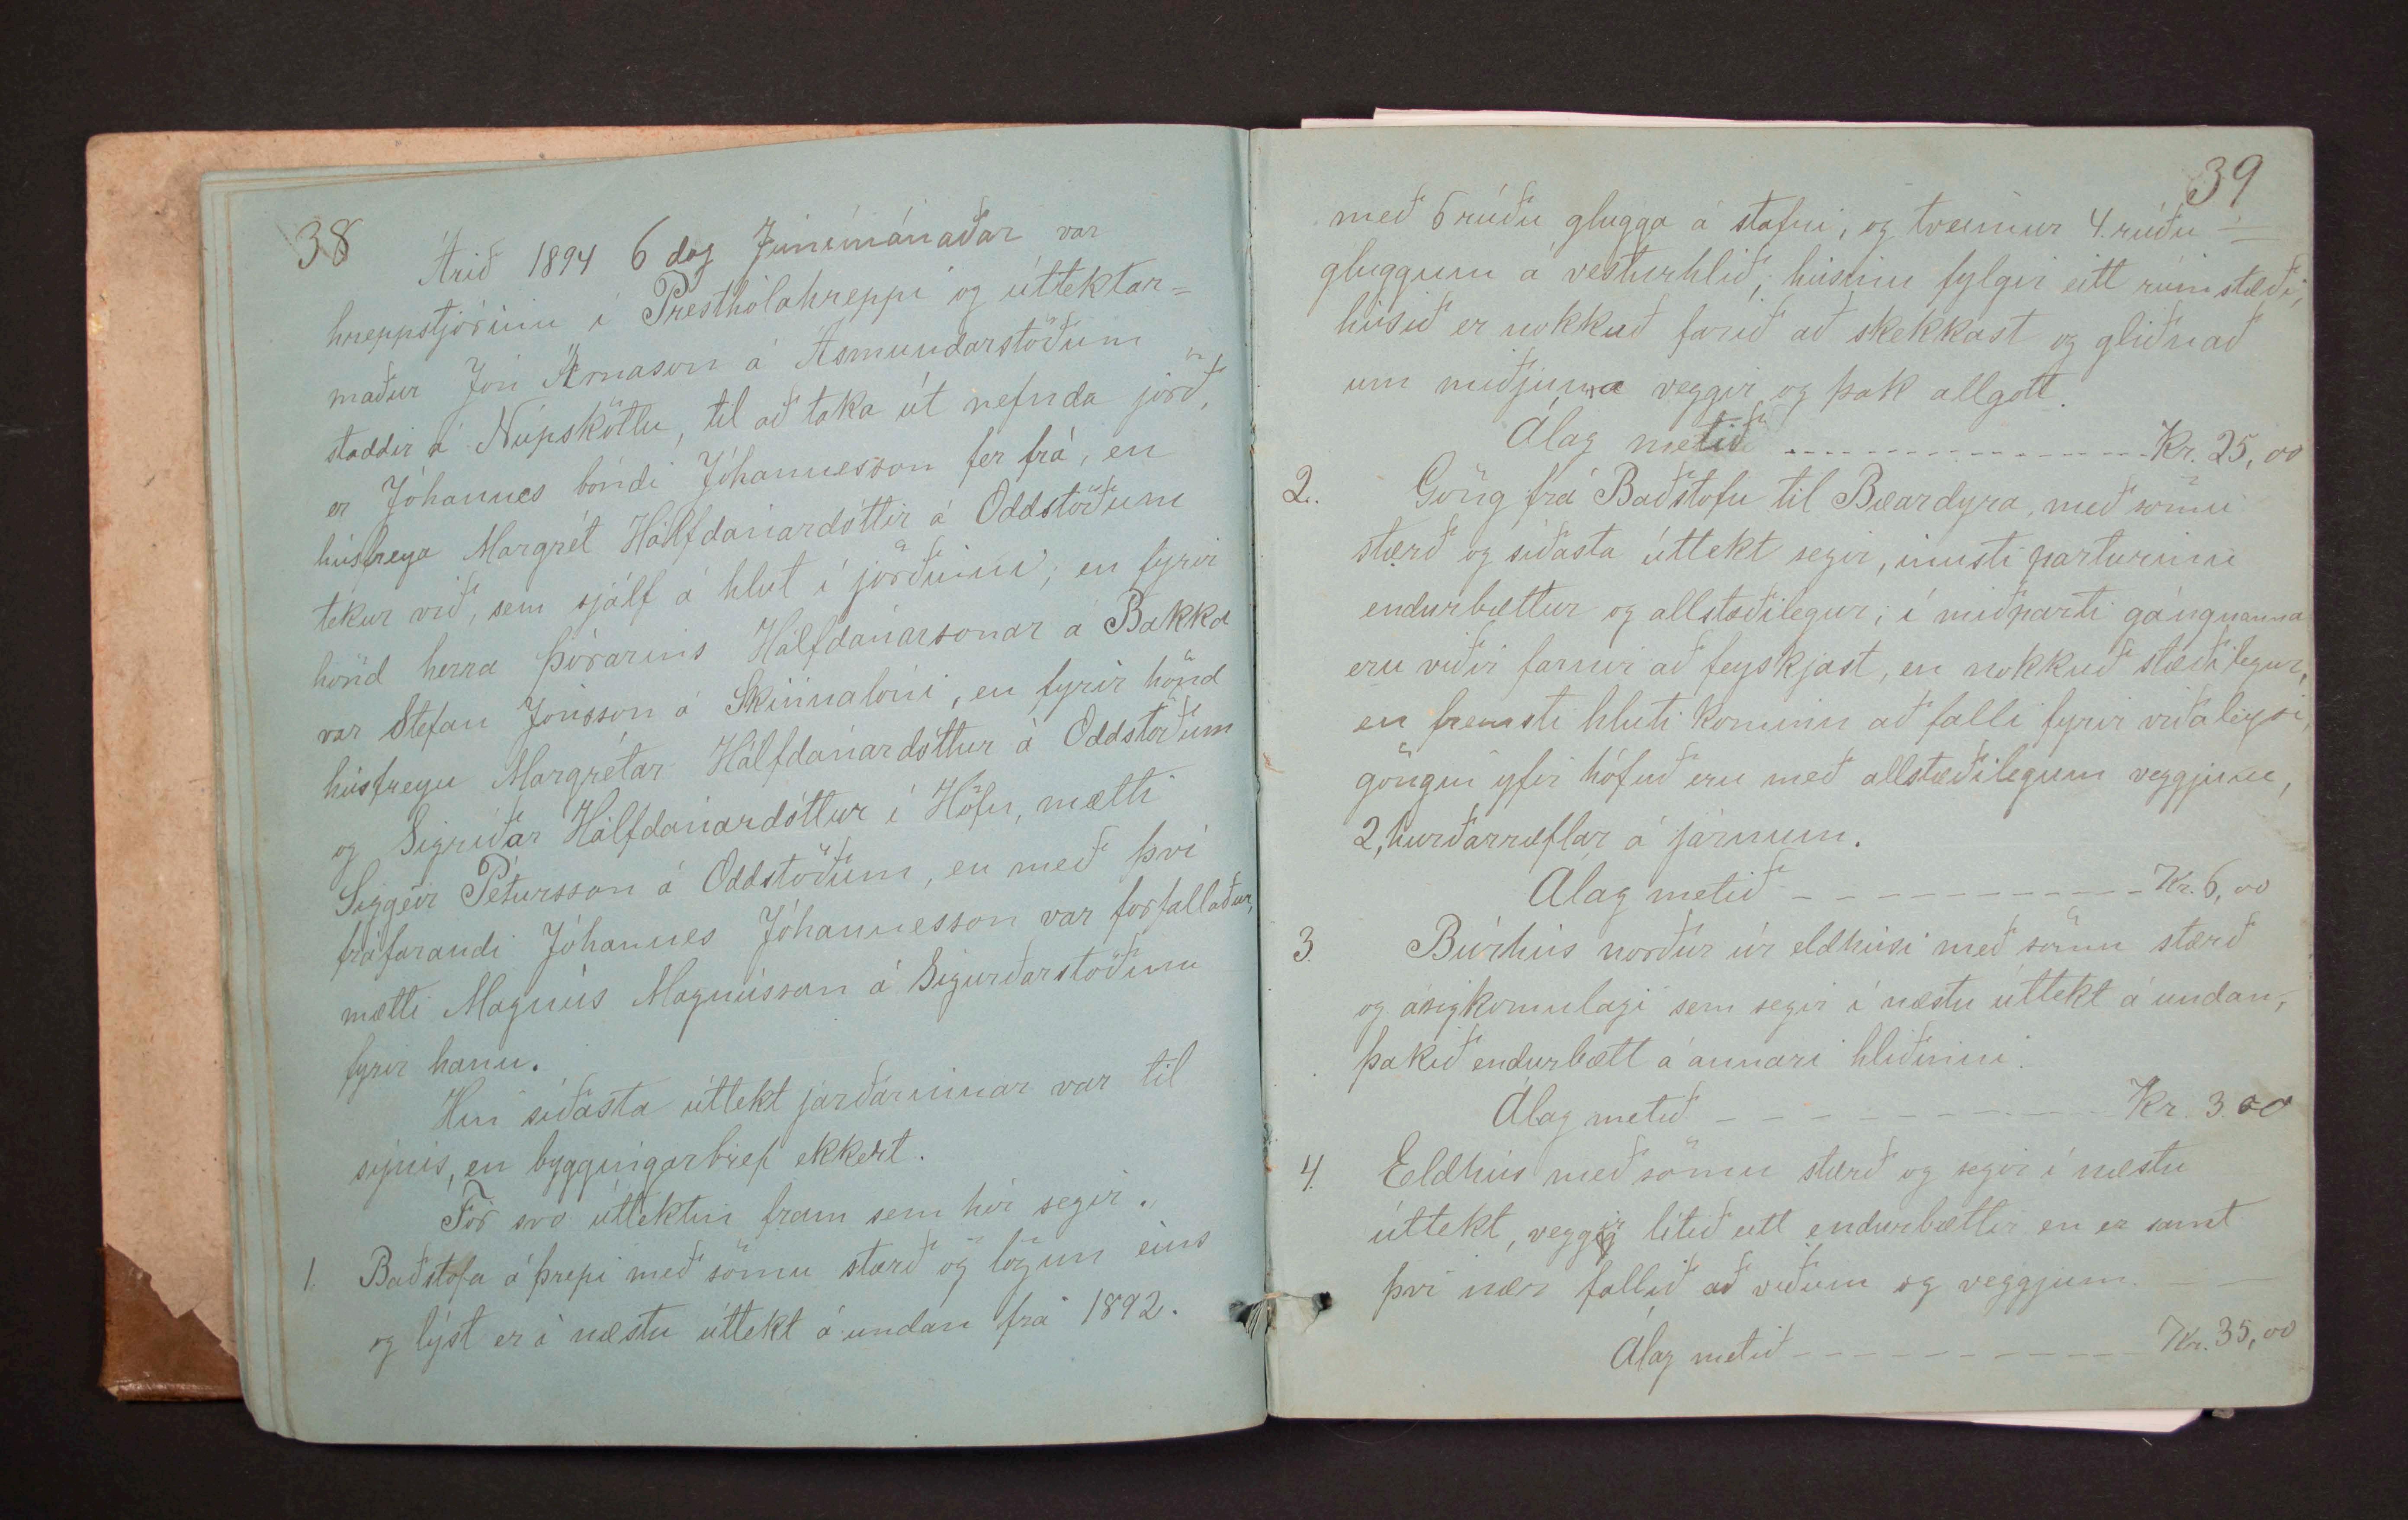 38
Árið 1894 6 dag Júnímánaðar var
hreppstjórinn í Presthólahreppi og úttektar=
maður Jón Árnason á Ásmundarstöðum
staddir á Núpskötlu, til að taka út nefnda jörð,
er Jóhannes bóndi Jóhannesson fer frá, en
húsfreya Margrét Hálfdánardóttir á Oddstöðum
tekur við, sem sjálf á hlut í jörðinni; en fyrir
hönd herra Þórarins Hálfdánarsonar á Bakka
var Stefan Jónsson á Skinnalóni, en fyrir hönd
húsfreyu Margrétar Hálfdánardóttur á Oddstöðum
og Sigríðar Hálfdánardóttur í Höfn, mætti
Siggeir Pétursson á Oddstöðum, en með því
fráfarandi Jóhannes Jóhannesson var forfallaður,
mætti Magnús Magnússon á Sigurðarstöðum
fyrir hann.
Hin síðasta úttekt jarðarinnar var til
sýnis, en byggingarbréf ekkert.
Fór svo úttektin fram sem hér segir.
1. Baðstofa á þrepi með sömu stærð og lögun eins
og lýst er í næstu úttekt á undan frá 1892.
39
með 6 rúðu glugga á stafni, og tveimur 4. rúðu =
gluggum á vesturhlið; húsinu fylgir eitt rúmstæði,
húsið er nokkuð farið að skekkast og gliðnað
um miðjuna veggir og þak allgott.
Álag metið Kr. 25,00
2. Göng frá Baðstofu til Bæardyra, með sömu
stærð og síðasta úttekt segir, innsti parturinn
endurbættur og allstæðilegur; í miðparti gángnanna
eru viðir farnir að feyskjast, en nokkuð stæðilegur,
en fremsti hluti kominn að falli fyrir viðaleysi,
göngin yfir höfuð eru með allstæðilegum veggjum,
2, hurðarræflar á járnum.
Álag metið Kr. 6,00
3. Búrhús norður úr eldhúsi með sömu stærð
og ásigkomulagi sem segir í næstu úttekt á undan,
þakið endurbætt á annari hliðinni.
Álag metið Kr. 3.00
4. Eldhús með sömu stærð og segir í næstu
úttekt, veggir lítið eitt endurbættir en er samt
því nær fallið að viðum og veggjum.
Álag metið Kr. 35,00